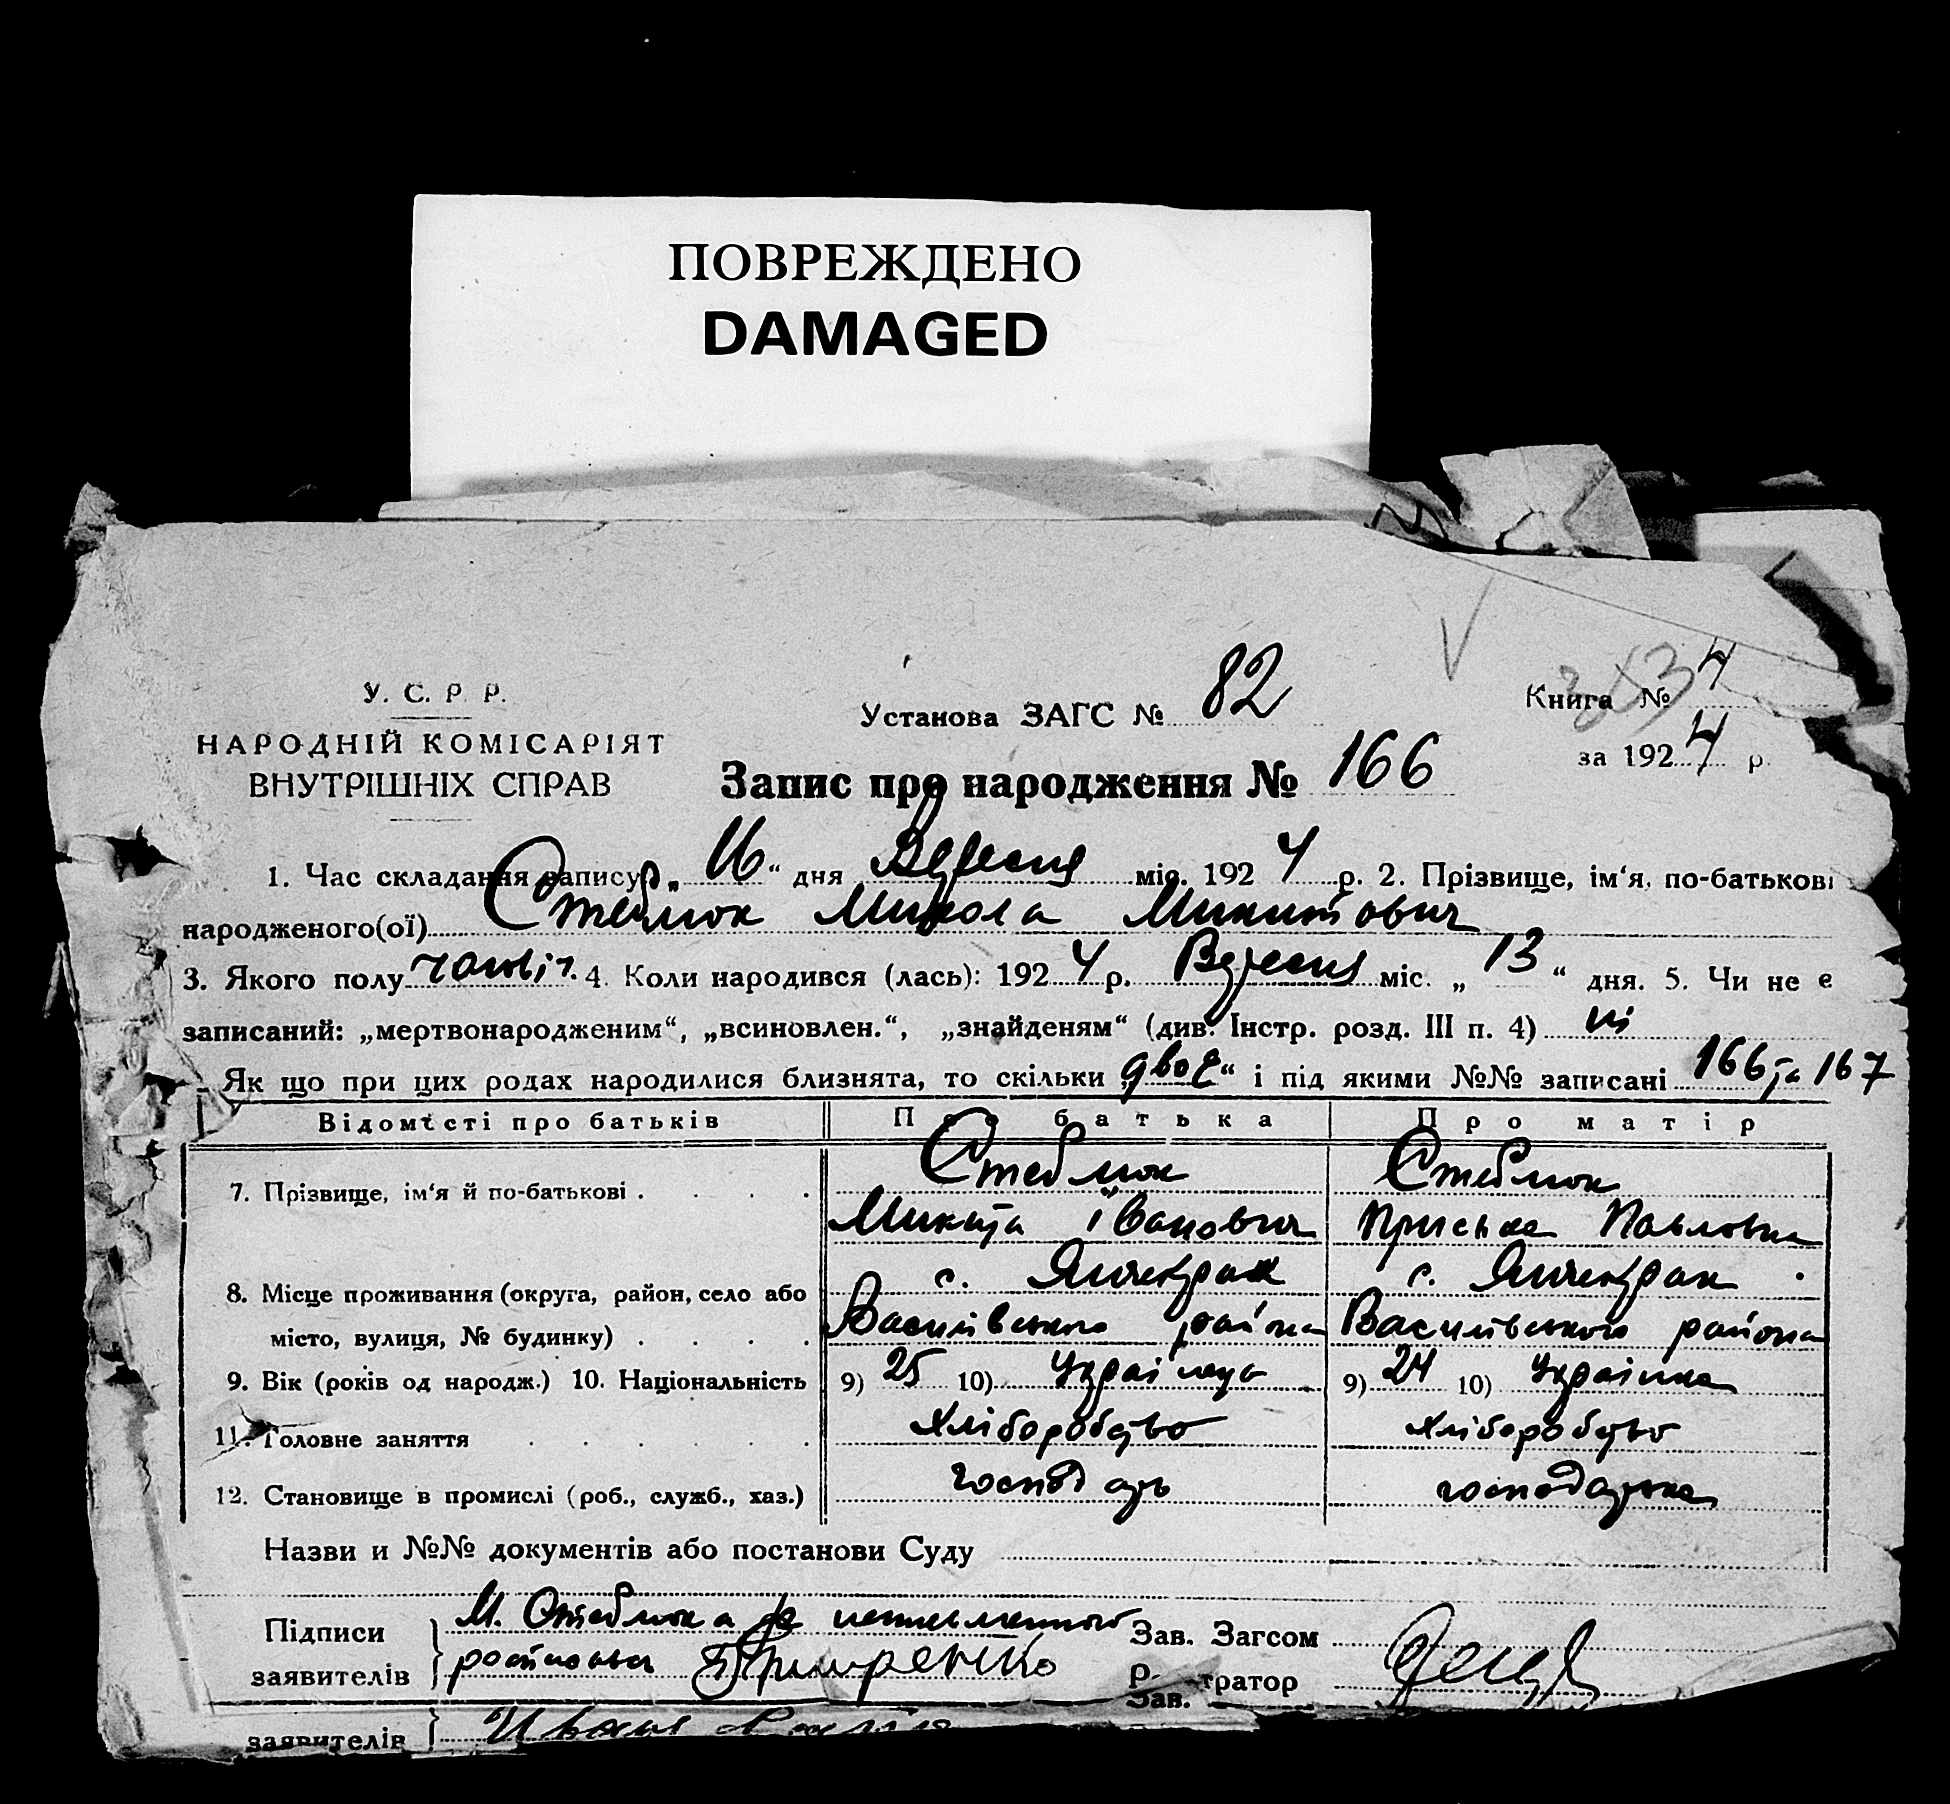 ПОВРЕЖДЕНО
DAMAGED
У. С. Р. Р.
НАРОДНІЙ КОМІСАРІЯТ
ВНУТРІШНІХ СПРАВ
Установа ЗАГС № 82
Книга № 4
за 1924 р.
Запис про народження № 166
1. Час складання запису: „16“ дня Вересня міс. 1924 р. 2. Прізвище, ім‘я, по-батькові
народженого(ої) Стеблюк Микола Микитович
3. Якого полу чолові. 4. Коли народився (лась): 1924 р. Вересня міс. „13“ дня. 5. Чи не є
записаний: „мертвонародженим“, „всиновлен.“, „знайденям“ (див. Інстр. розд. III п. 4) ні
Як що при цих родах народилися близнята, то скільки „двоє“ і під якими №№ записані 166 та 167
Відомісті про батьків Про батька Про матір
7. Прізвище, ім‘я й по-батькові . . . . Стеблюк Стеблюк
Микита Іванович Приська Павловна
8. Місце проживання (округа, район, село або с. Янчекрак с. Янчекрак
місто, вулиця, № будинку) . . . . Василівського района Василівського района
9. Вік (років од народж.) 10. Національність 9) 25 10) Українець 9) 24 10) Українка
11. Головне заняття . . . . . . Хліборобство Хліборобство
12. Становище в промислі (роб., служб., хаз.) господарь господарька
Назви и №№ документів або постанови Суду
Підписи М. Стеблюка Зав. Загсом
заявителів
заявителів